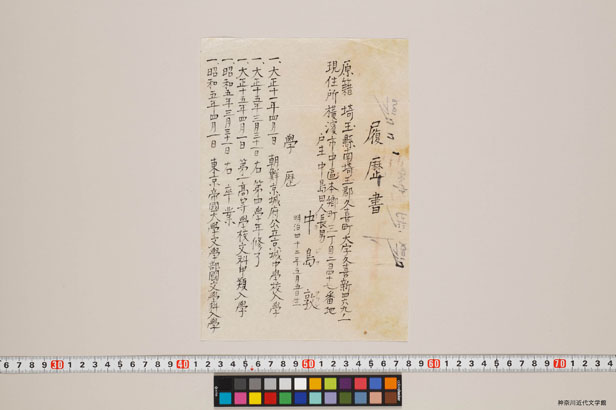 履歴書
原籍 埼玉縣南埼玉郡久喜町大字久喜新四六九ノ一
現住所 横濱市中區本郷町三丁目二四七番地
戸主中島田人長男
中島敦
明治四十二年五月五日生
學歴
一、大正十一年四月一日 朝鮮京城府公立京城中學校入學
一、大正十五年三月三十一日 右 第四學年修了
一、大正十五年四月一日 第一高等學校文科甲類入學
一、昭和五年三月三十一日 右 卒業
一、昭和五年四月一日 東京帝國大學文學部國文學科入學
6 7 8 9 30 1 2 3 4 5 6 7 8 9 40 1 2 3 4 5 6 7 8 9 50 1 2 3 4 5 6 7 8 9 60 1 2 3 4 5 6 7 8 9 70 1 2 3
神奈川近代文学館